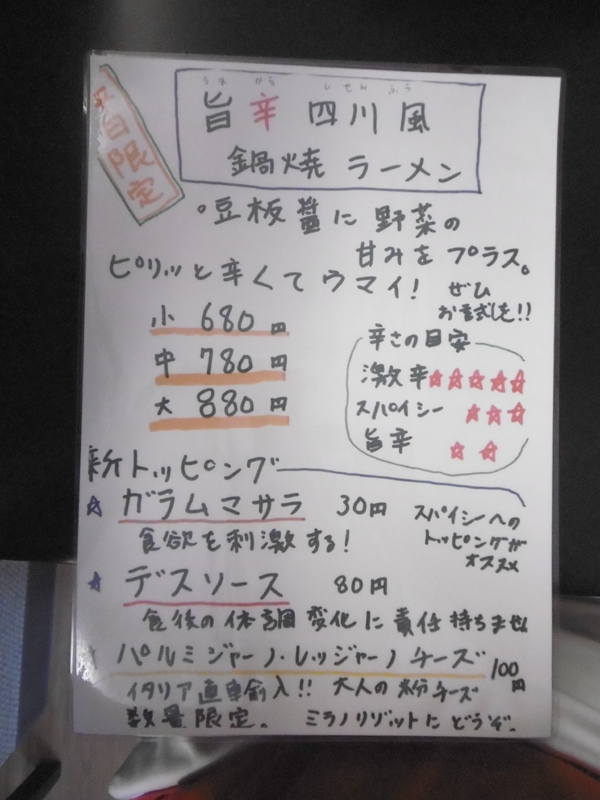 限定
うま から しせん ふう
旨辛 四川風
鍋焼 ラーメン
豆板醤に野菜の
甘みをプラス。
ピリッと辛くてウマイ!
ぜひ
お試しを!!
小 680円
中 780円
大 880円
辛さの目安
激辛☆☆☆☆☆
スパイシー ☆☆☆
旨辛 ☆☆
新トッピング
☆ ガラムマサラ 30円
食欲を刺激する!
スパイシーへの
トッピングが
オススメ
☆ デスソース 80円
食後の体調変化に責任持ちません
パルミジャーノ・レッジャーノチーズ 100円
イタリア直輸入!! 大人の粉チーズ
数量限定。 ミラノリゾットにどうぞ。